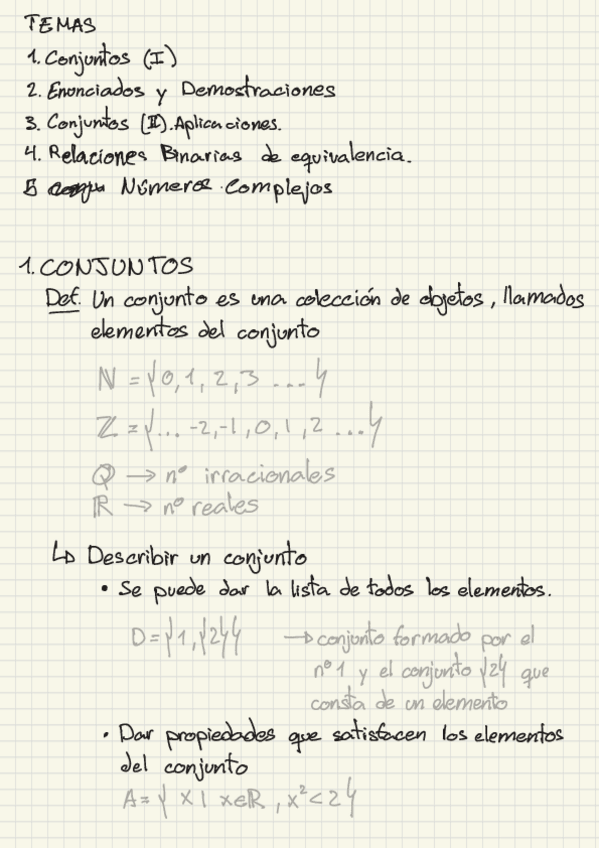 TEMAS
1. Conjuntos (I)
2. Enunciados y Demostraciones
3. Conjuntos (II). Aplicaciones.
4. Relaciones Binarias de equivalencia.
5 Números Complejos
1. CONJUNTOS
Def. Un conjunto es una colección de objetos, llamados
elementos del conjunto
ℕ = {0, 1, 2, 3 ... }
ℤ = {... -2, -1, 0, 1, 2 ... }
ℚ → nº irracionales
ℝ → nº reales
↳ Describir un conjunto
• Se puede dar la lista de todos los elementos.
D = {1, {2}} → conjunto formado por el
nº 1 y el conjunto {2} que
consta de un elemento
• Dar propiedades que satisfacen los elementos
del conjunto
A = { x | x ∈ ℝ, x² < 2 }